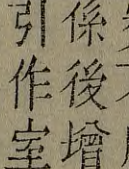 係後增
引作室